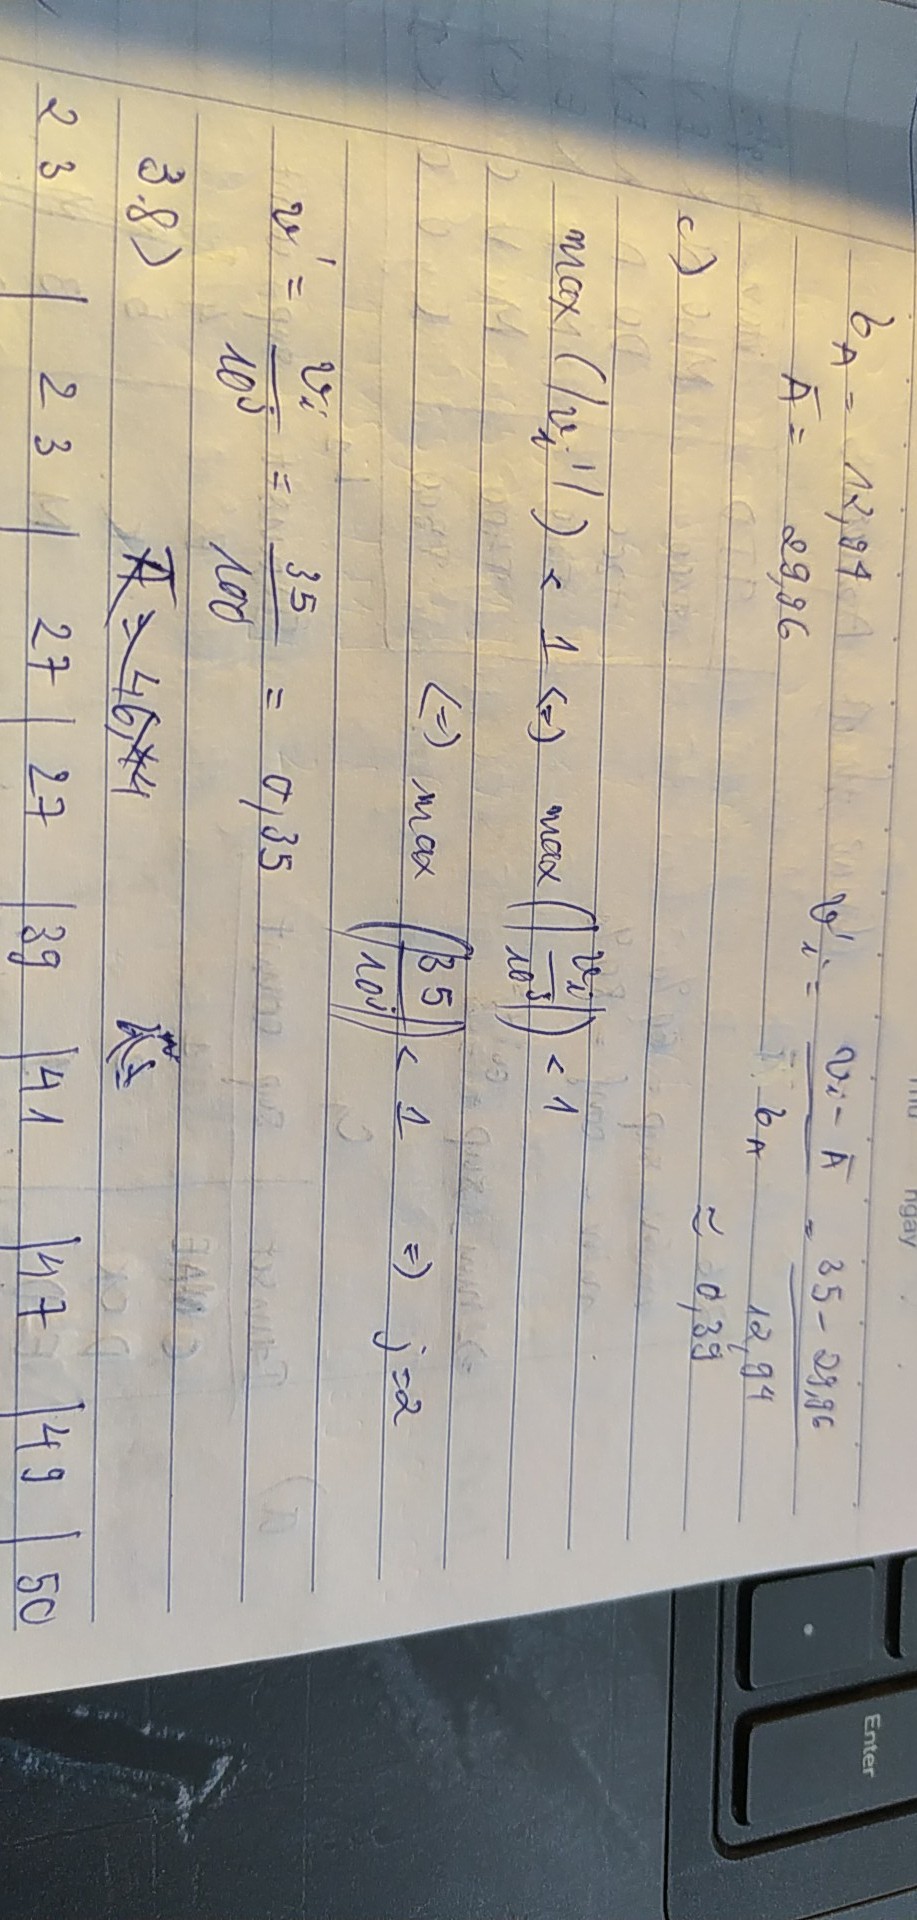 Thu ngay
Enter
б_A = 12,94
Ā = 29,96
v'_i = (v_i - Ā) / б_A = (35 - 29,96) / 12,94
≈ 0,39
c)
max(|v_i'|) < 1 <=> max(|v_i / 10^j|) < 1
<=> max(|35 / 10^j|) < 1 => j=2
v' = v_i / 10^j = 35 / 100 = 0,35
3.8)
23 | 23 | 27 | 27 | 39 | 41 | 47 | 49 | 50